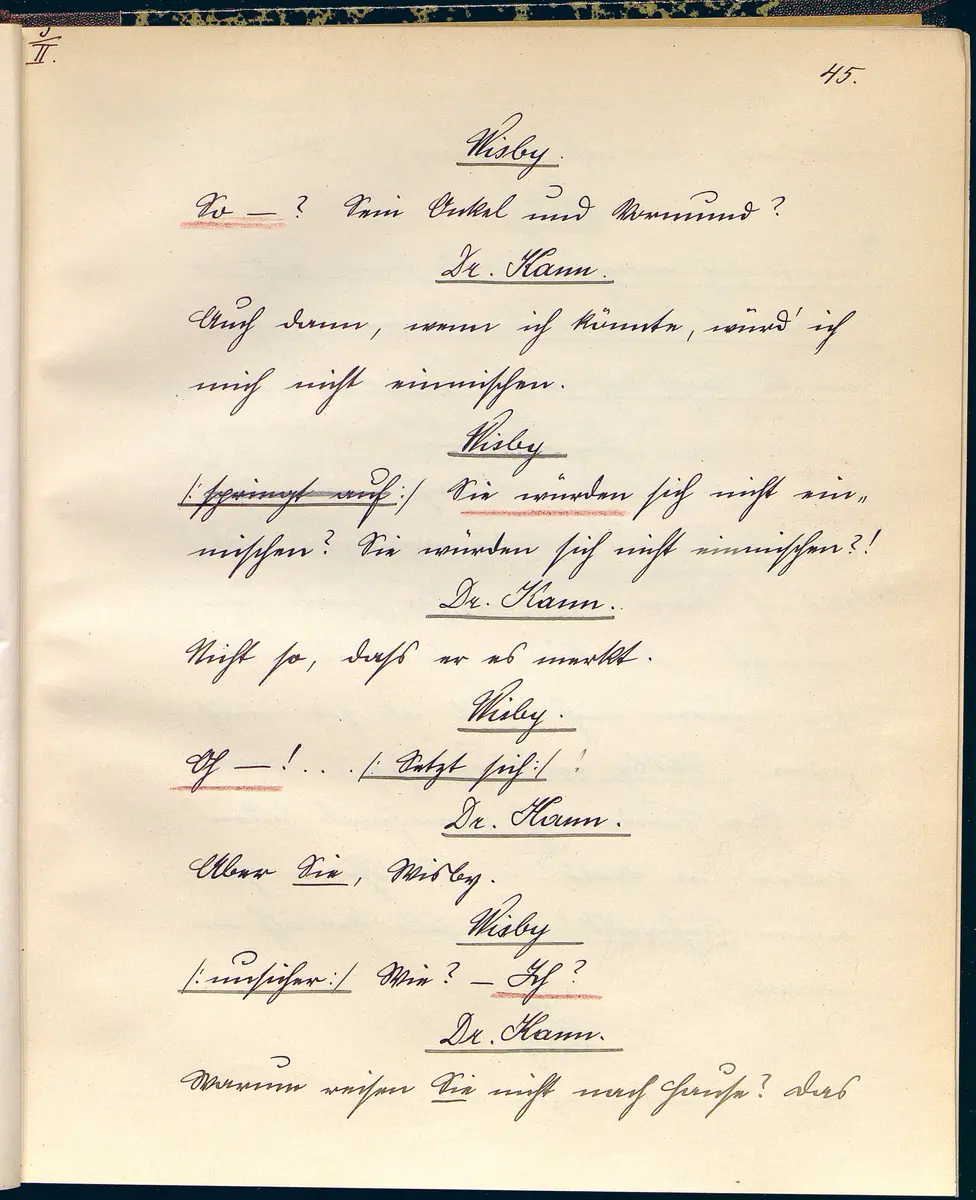 II.
45.
Wisby.
So — ? Sein Onkel und Vormund?
Dr. Kann.
Auch dann, wenn ich könnte, würd' ich
mich nicht einmischen.
Wisby
/: springt auf :/ Sie würden sich nicht ein„
mischen? Sie würden sich nicht einmischen?!
Dr. Kann.
Nicht so, dass er es merkt.
Wisby.
Oh — ! . . . /: Setzt sich :/
Dr. Kann.
Aber Sie, Wisby.
Wisby
/: unsicher :/ Wie? — Ich?
Dr. Kann.
Warum reisen Sie nicht nach Hause? Das